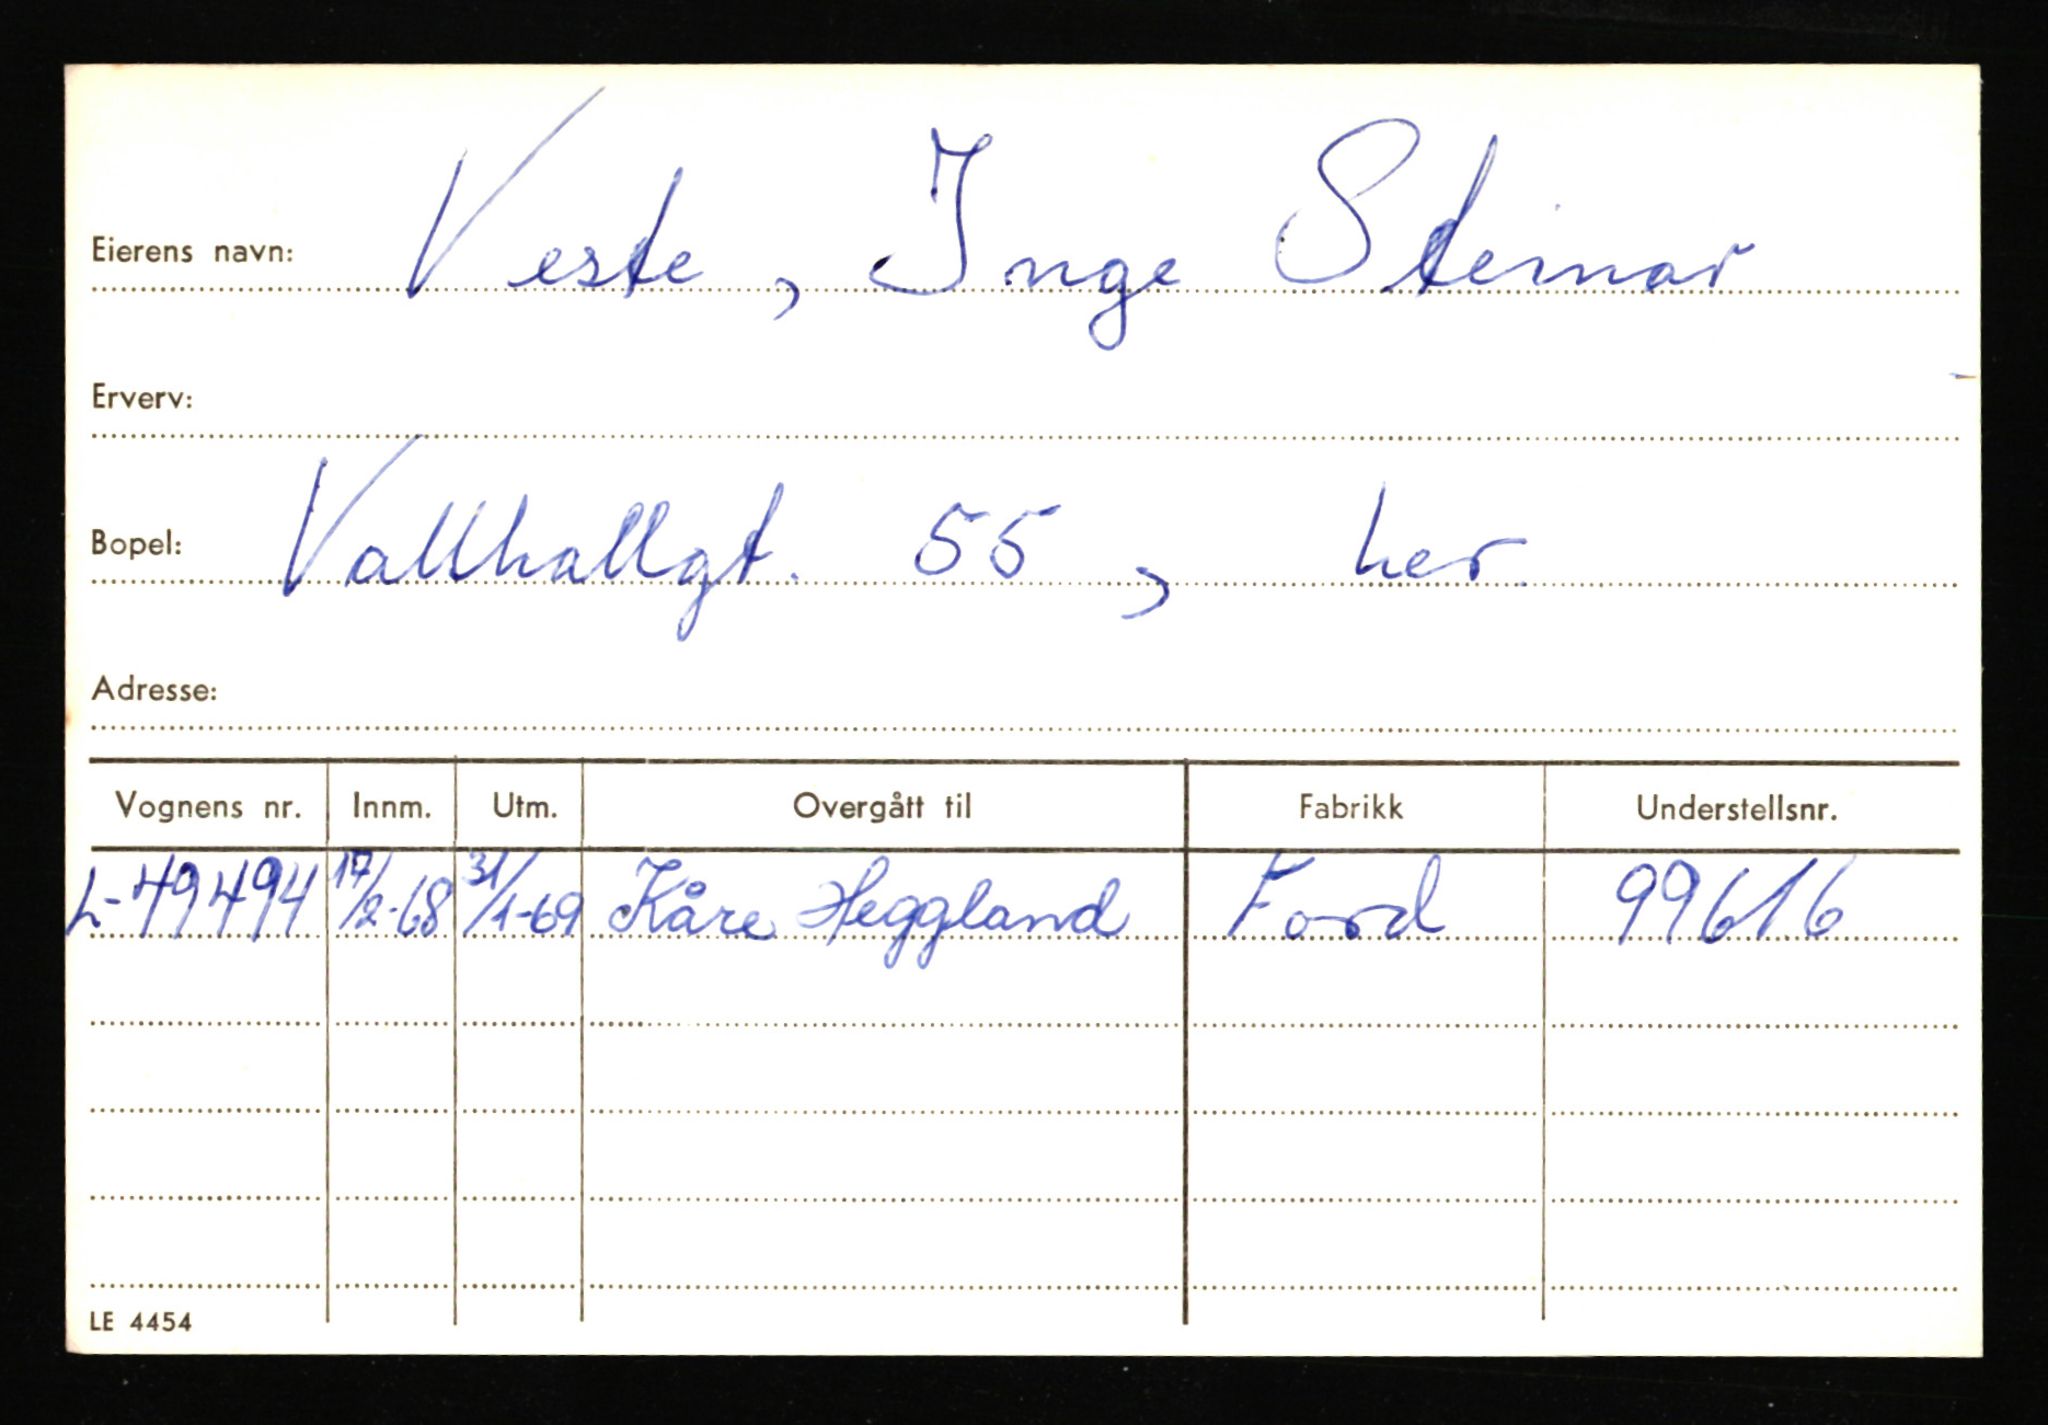 Eierens navn: Veste, Inge Steinar
Erverv:
Bopel: Vallhallgt. 55, her.
Adresse:
Vognens nr. Innm. Utm. Overgått til Fabrikk Understellsnr.
L-49494 17/2-68 31/1-69 Kåre Heggland Ford 99616
LE 4454